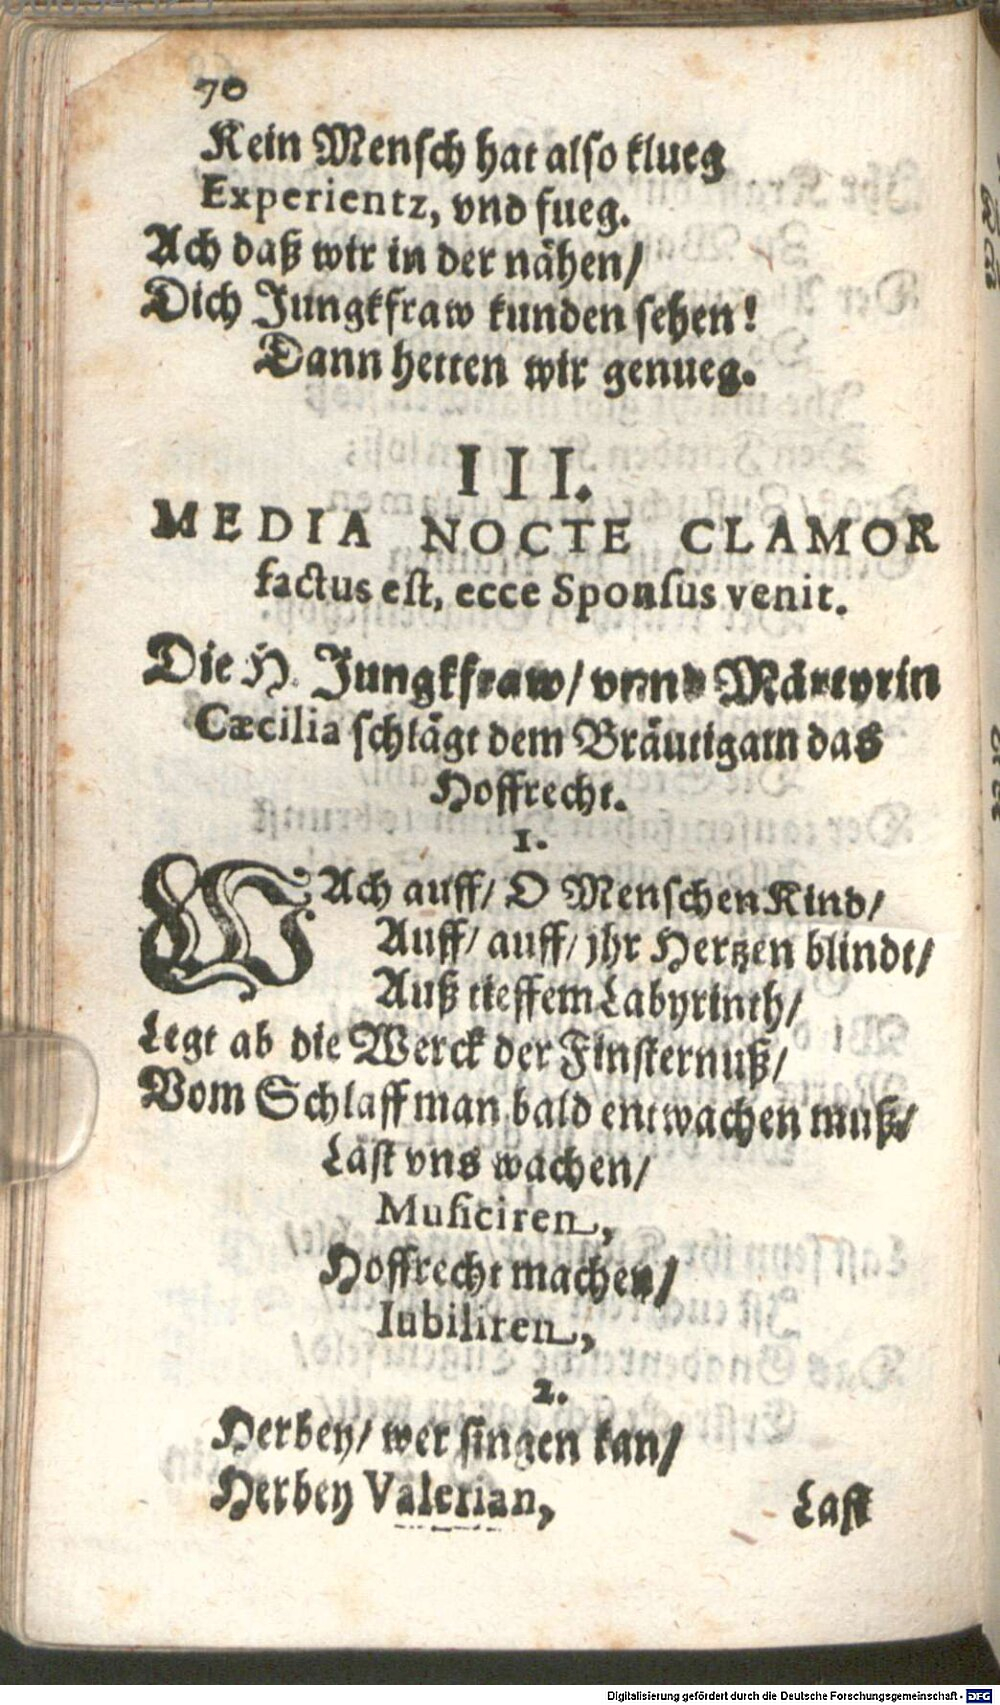 70
Kein Mensch hat also klueg
Experientz, vnd fueg.
Ach daß wir in der nähen/
Dich Jungkfraw kunden sehen!
Dann hetten wir genueg.
III.
MEDIA NOCTE CLAMOR
factus est, ecce Sponsus venit.
Die H. Jungkfraw/ vnnd Märtyrin
Cæcilia schlägt dem Bräutigam das
Hoffrecht.
1.
WAch auff/ O Menschen Kind/
Auff/ auff/ jhr Hertzen blindt/
Auß tieffem Labyrinth/
Legt ab die Werck der Finsternuß/
Vom Schlaff man bald entwachen muß/
Last vns wachen/
Musiciren,
Hoffrecht machen/
Iubiliren,
2.
Herbey/ wer singen kan/
Herbey Valerian,
Last
Digitalisierung gefördert durch die Deutsche Forschungsgemeinschaft - DFG